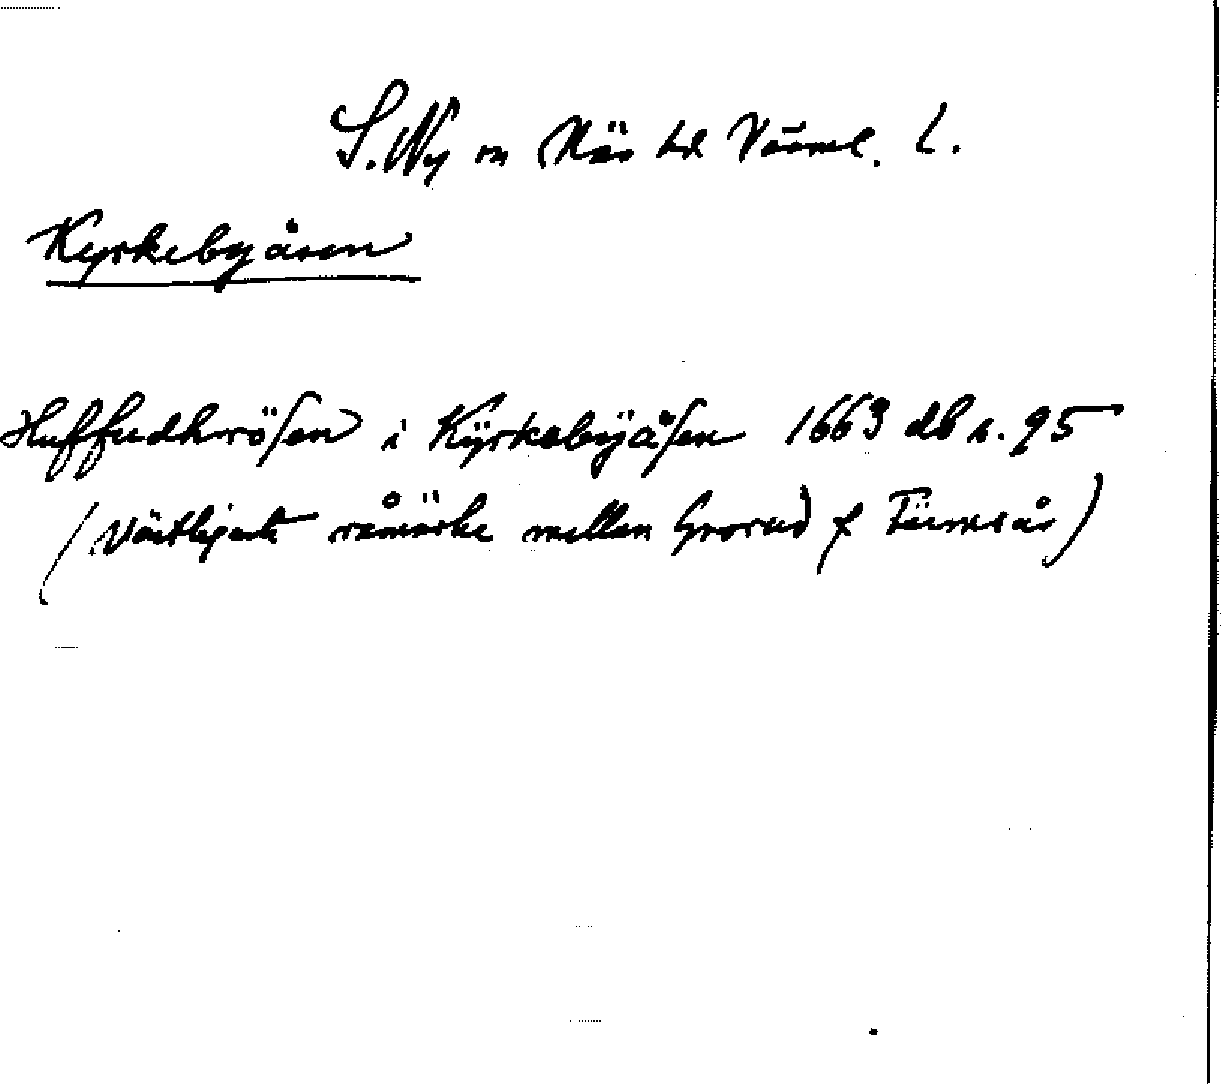 S. Ny sn Näs hd Värml. L.
Kyrkebyåsen
Huffudhrösen i Kÿrkebÿåsen 1663 db s. 95
(Västligaste råmärke mellan